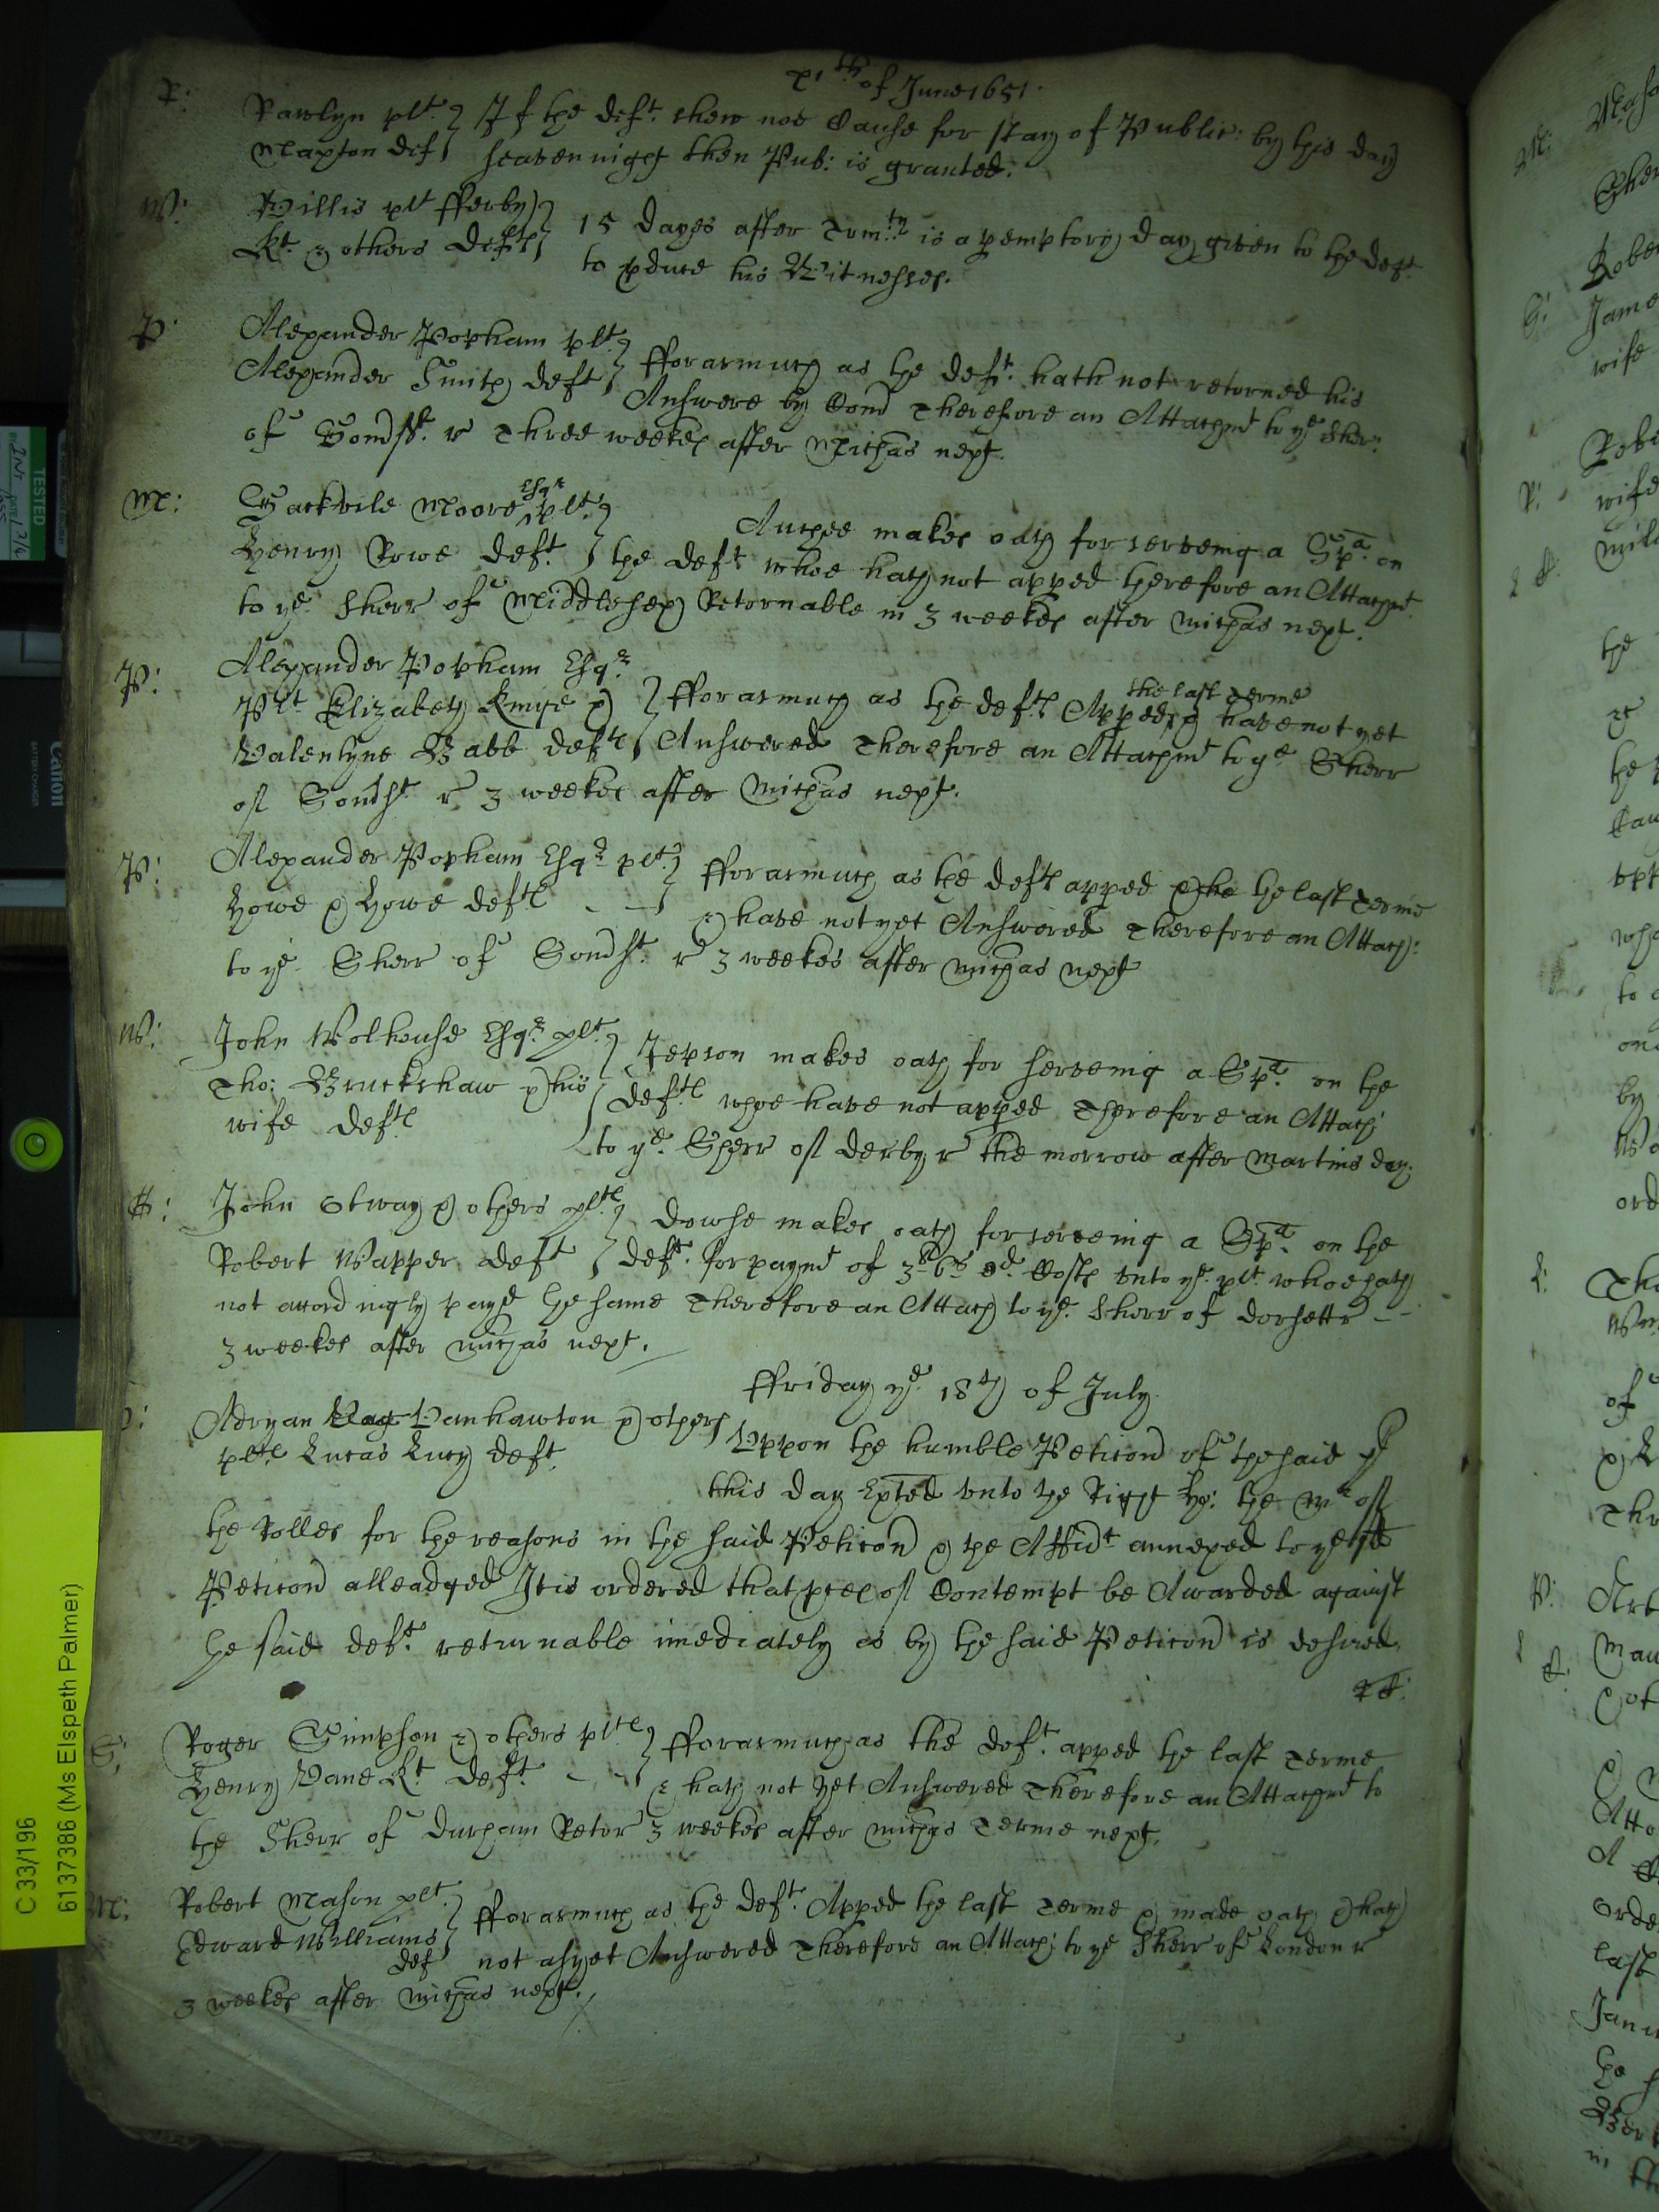 xith of June 1651.
R: Rawlyn plt. } If the deft. shew not Cause for stay of Public: by this day
Maxton def } seavennight then Pub: is granted.
W: Willis plt fferby
Kt. & others Defts } 15 dayes after Trin:ty is a pemptory day given to the deft.
to pduce his Witnesses.
P: Alexander Popham plt.
Alexander Smith deft } fforasmuch as the deft. hath not retorned his
Answere by Com Therefore an Attachmt to ye Sherr:
of Somsst. r Three weekes after Michas next.
M: Sackvile Moore Esqr plt.
Henry Rowe deft. } Anthee makes oath for serveing a Spa. on
the deft whoe hath not apped therefore an Attachmt
to ye Sherr of Middlesex Retornable in 3 weekes after Michas next.
P: Alexander Popham Esqr
Plt Elizabeth Kniye &
Valentyne Babb defts } fforasmuch as the defts Apped the last Terme & have not yet
Answered Therefore an Attachmt to ye Sherr
of Somsst. r 3 weekes after Michas next.
P: Alexander Popham Esqr plt.
Howe & Howe defts } fforasmuch as the defts apped & ha the last Terme
& have not yet Answered Therefore an Attach:
to ye Sherr of Somsst. r 3 weekes after Michas next
W: John Wolhouse Esqr. plt.
Tho: Bruckshaw & his
wife defts } Jepson makes oath for serveing a Spa. on the
defts whoe have not apped Therefore an Attach:
to ye Sherr of derby r the morrow after Martins day.
John Otway & others plts
Robert Wapper deft } dowse makes oath for serveing a Spa. on the
deft. for paymt of 3li 6s 8d. Costs unto ye plt. whoe hath
not accordingly payd the same Therefore an Attach to ye Sherr of dorsett r
3 weekes after Michas next.
ffriday ye 18th of July.
Adryan Vag Vanhawton & others
plts Lucas Lucy deft. } Uppon the humble Peticon of the said pl
this day exhted unto the Right Ho: the Mr of
the Rolles for the reasons in the said Peticon & the Affidt annexed to ye sd
Peticon alleadged It is ordered that pces of Contempt be Awarded against
the said deft. returnable imediately as by the said Peticon is desired.
S: Roger Simpson & others plts
Henry Vane Kt. deft. } fforasmuch as the deft. apped the last Terme
& hath not yet Answered Therefore an Attachmt to
the Sherr of Durham Retor 3 weekes after Michas Terme next.
M: Robert Mason plt.
Edward Williams
def } fforasmuch as the deft. Apped the last Terme & made oath & hath
not as yet Answered Therefore an Attach: to ye Sherr of London r
3 weekes after Michas next.
C 33/196
6137386 (Ms Elspeth Palmer)
TESTED
Canon
BATTERY CHARGER